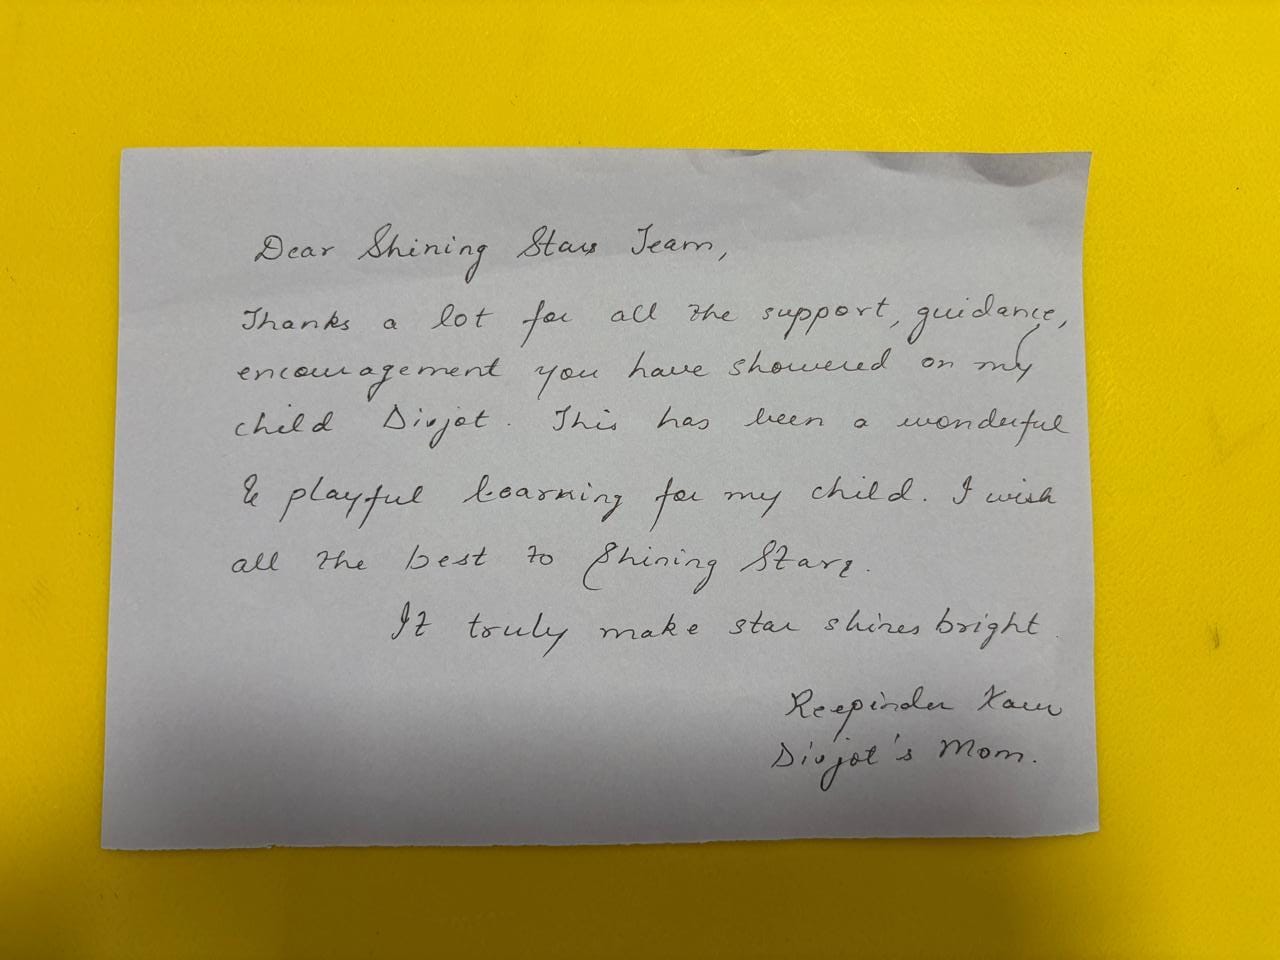 Dear Shining Stars Team,
Thanks a lot for all the support, guidance,
encouragement you have showered on my
child Divjot. This has been a wonderful
& playful learning for my child. I wish
all the best to Shining Stars.
It truly make star shines bright.
Reepinder Kaur
Divjot's Mom.